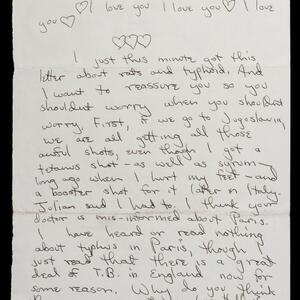 ♡ I love you I love you ♡ I love
you ♡
♡♡♡
I just this minute got this
letter about rats and typhoid. And
I want to reassure you so you
shouldnt worry when you shouldnt
worry. First, if we go to Jugoslavia,
we are all getting all those
awful shots, even though I got a
tetanus shot—as well as syrum—
long ago when I hurt my feet—and
a booster shot for it later in Italy.
Julian said I had to. I think your
doctor is mis-informed about Paris.
I have heard or read nothing
about typhus in Paris, though I
just read that there is a great
deal of T.B. in England now for
some reason. Why do you think